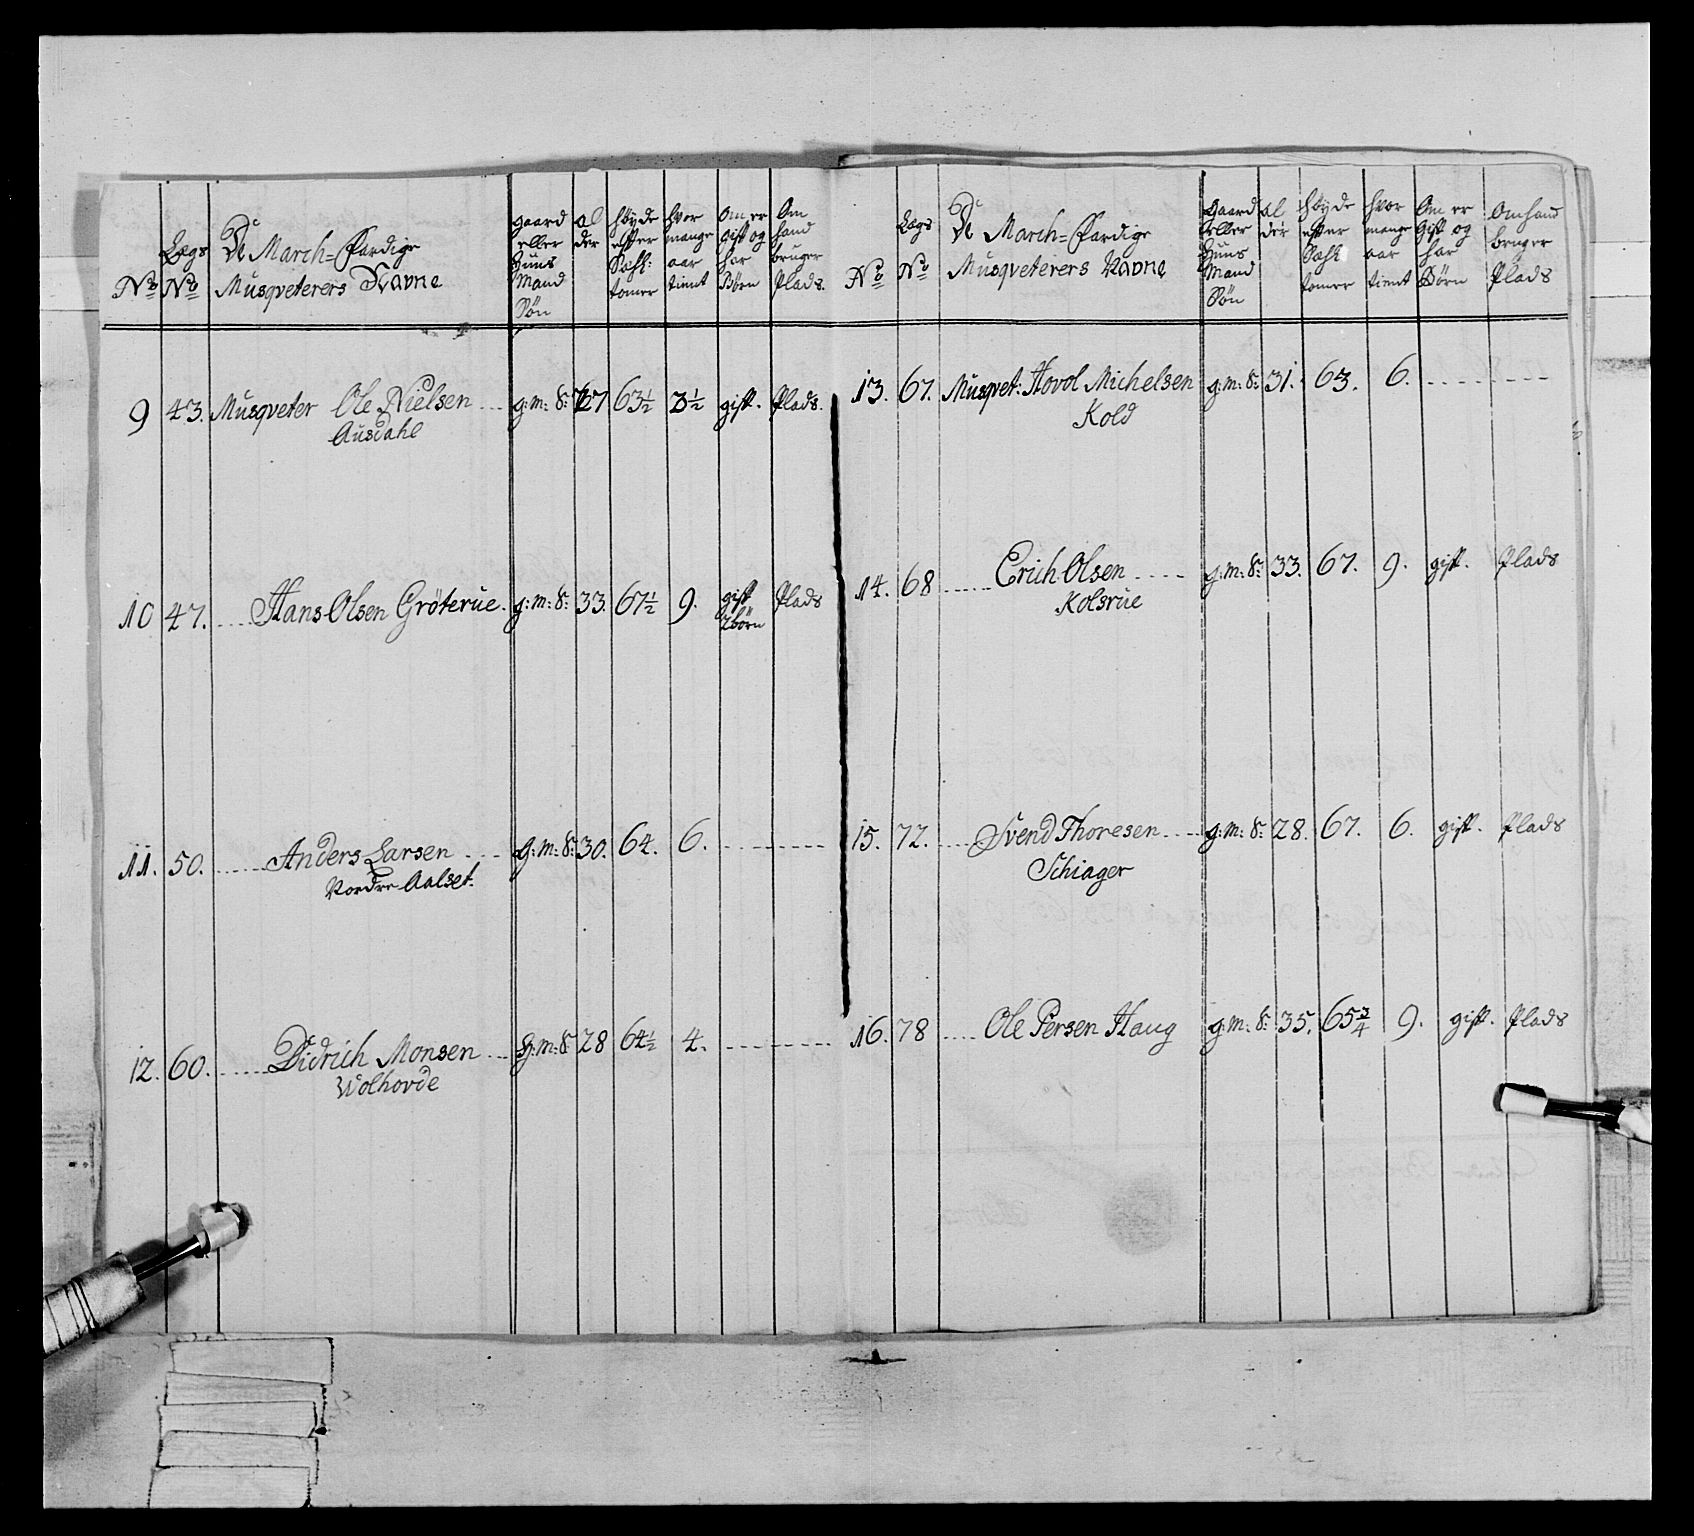 No Lægs No De March=Færdige Musqveterers Navne gaard eller Huus Mand Søn al der höyde efter Sahl: tomer hvor mange aar tient Om er gift og har Börn Om hand bruger Plads.
9 43. Musqveter Ole Nielsen g:m: S: 27 63½ 3½ gift. Plads.
Ausdahl
10 47. Hans Olsen Gröterüe. g:m: S: 33. 67½ 9. gift Plads
2börn
11. 50. Anders Larsen G:m: S: 30. 64. 6.
Nordre Aalset.
12. 60. Didrich Monsen g:m: S 28 64½ 4.
Wolhovde
No Lægs No De March=Færdige Musqveterers Navne gaard eller Huus Mand Søn al der höyde efter Sahl tomer hvor mange aar tient Om er Gift og har Börn Om hand bruger Plads
13. 67. Musqvet: Hovol Michelsen g:m: S: 31. 63. 6.
Kold
14. 68 Erich Olsen g:m: S: 33. 67. 9. gift. Plads
Kolsrüe
15. 72. Svend Thoresen g:m: S: 28. 67. 6. gift. Plads
Schiager
16. 78 Ole Persen Haug g:m: S: 35. 65¾ 9. gift. Plads